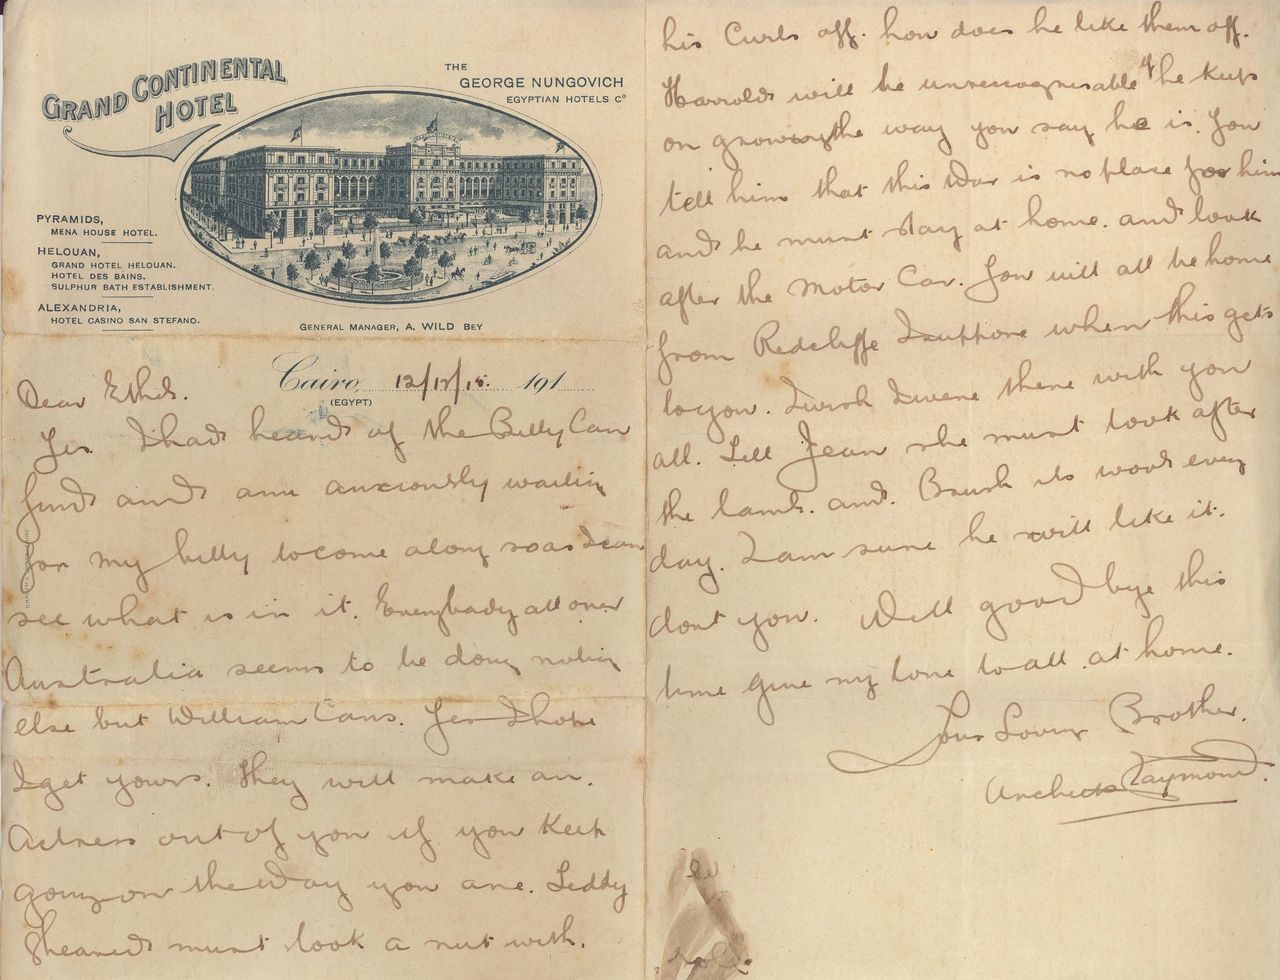 GRAND CONTINENTAL
HOTEL
THE
GEORGE NUNGOVICH
EGYPTIAN HOTELS Cº
PYRAMIDS,
MENA HOUSE HOTEL.
HELOUAN,
GRAND HOTEL HELOUAN.
HOTEL DES BAINS.
SULPHUR BATH ESTABLISHMENT.
ALEXANDRIA,
HOTEL CASINO SAN STEFANO.
GENERAL MANAGER, A. WILD BEY
Cairo, 12/12/15. 191
(EGYPT)
Dear Ethel.
Yes I had heard of the Billy Can
fund and am anxiously waiting
for my billy to come along so as I can
see what is in it. Everybody all over
Australia seems to be doing nothing
else but William Cans. Yes I hope
I get yours. They will make an.
Actress out of you if you keep
going on the way you are. Teddy
Sheared must look a nut with.
his Curls off. how does he like them off.
Harrold will be unrecognisable if he keeps
on growing the way you say he is. You
tell him that this War is no place for him
and he must stay at home. and look
after the Motor Car. You will all be home
from Redcliffe I suppose when this gets
to you. I wish I were there with you
all. Tell Jean she must look after
the lamb. and. Brush its wool every
day. I am sure he will like it.
dont you. Well good bye this
time give my love to all at home.
Your Loving Brother.
Archie Raymond.